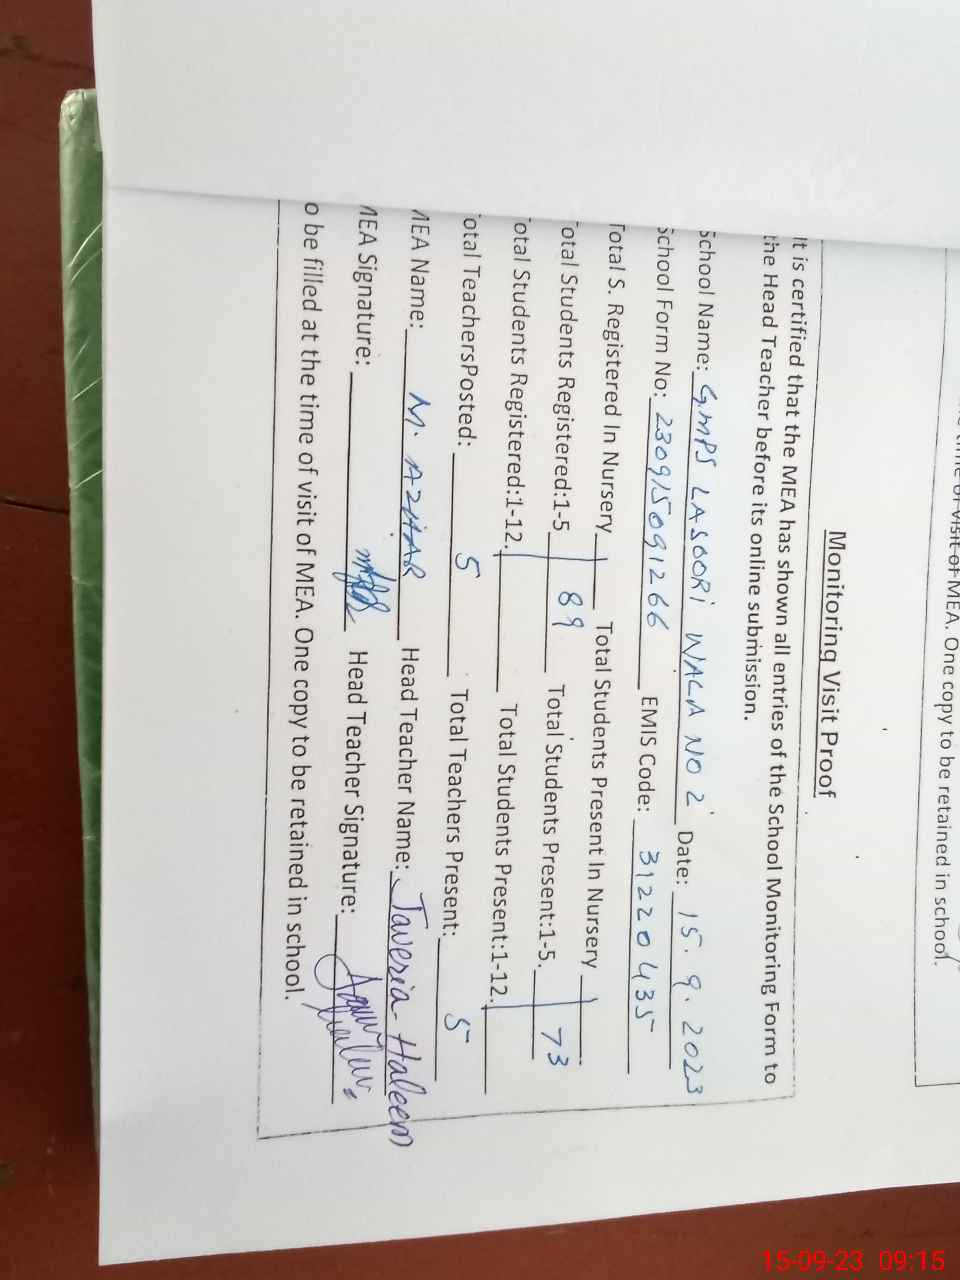 time of visit of MEA. One copy to be retained in school.
Monitoring Visit Proof
It is certified that the MEA has shown all entries of the School Monitoring Form to
the Head Teacher before its online submission.
School Name: GMPS LASOORI WALA NO 2 Date: 15.9.2023
School Form No: 230915091266 EMIS Code: 31220435
Total S. Registered In Nursery Total Students Present In Nursery
Total Students Registered:1-5 89 Total Students Present:1-5. 73
Total Students Registered:1-12. Total Students Present:1-12.
Total TeachersPosted: 5 Total Teachers Present: 5
MEA Name: M. AZHAR Head Teacher Name: Javeria Haleem
MEA Signature: Head Teacher Signature:
o be filled at the time of visit of MEA. One copy to be retained in school.
15-09-23 09:15